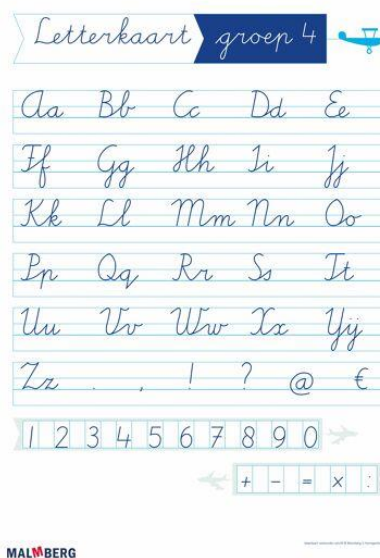 Letterkaart groep 4
Aa Bb Cc Dd Ee
Ff Gg Hh Ii Jj
Kk Ll Mm Nn Oo
Pp Qq Rr Ss Tt
Uu Vv Ww Xx Yy ij
Zz . , ! ? @ €
1 2 3 4 5 6 7 8 9 0
+ - = x :
MALMBERG